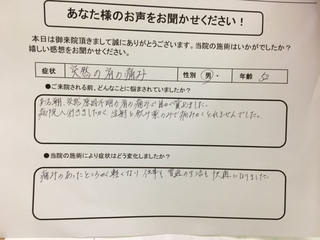 あなた様のお声をお聞かせください！
本日は御来院頂きまして誠にありがとうございます。当院の施術はいかがでしたか？
嬉しい感想をお聞かせください。
症状 突然の肩の痛み 性別 男・ 年齢 52
●ご来院される前、どんなことに悩まされていましたか？
ある朝、突然 原因不明の肩の痛みで目が覚めました。
病院へ行きましたが、注射も飲み薬のみで痛みがとれませんでした。
●当院の施術により症状はどう変化しましたか？
痛みのあったところが軽くなり 仕事も普段の生活も快適になりました。